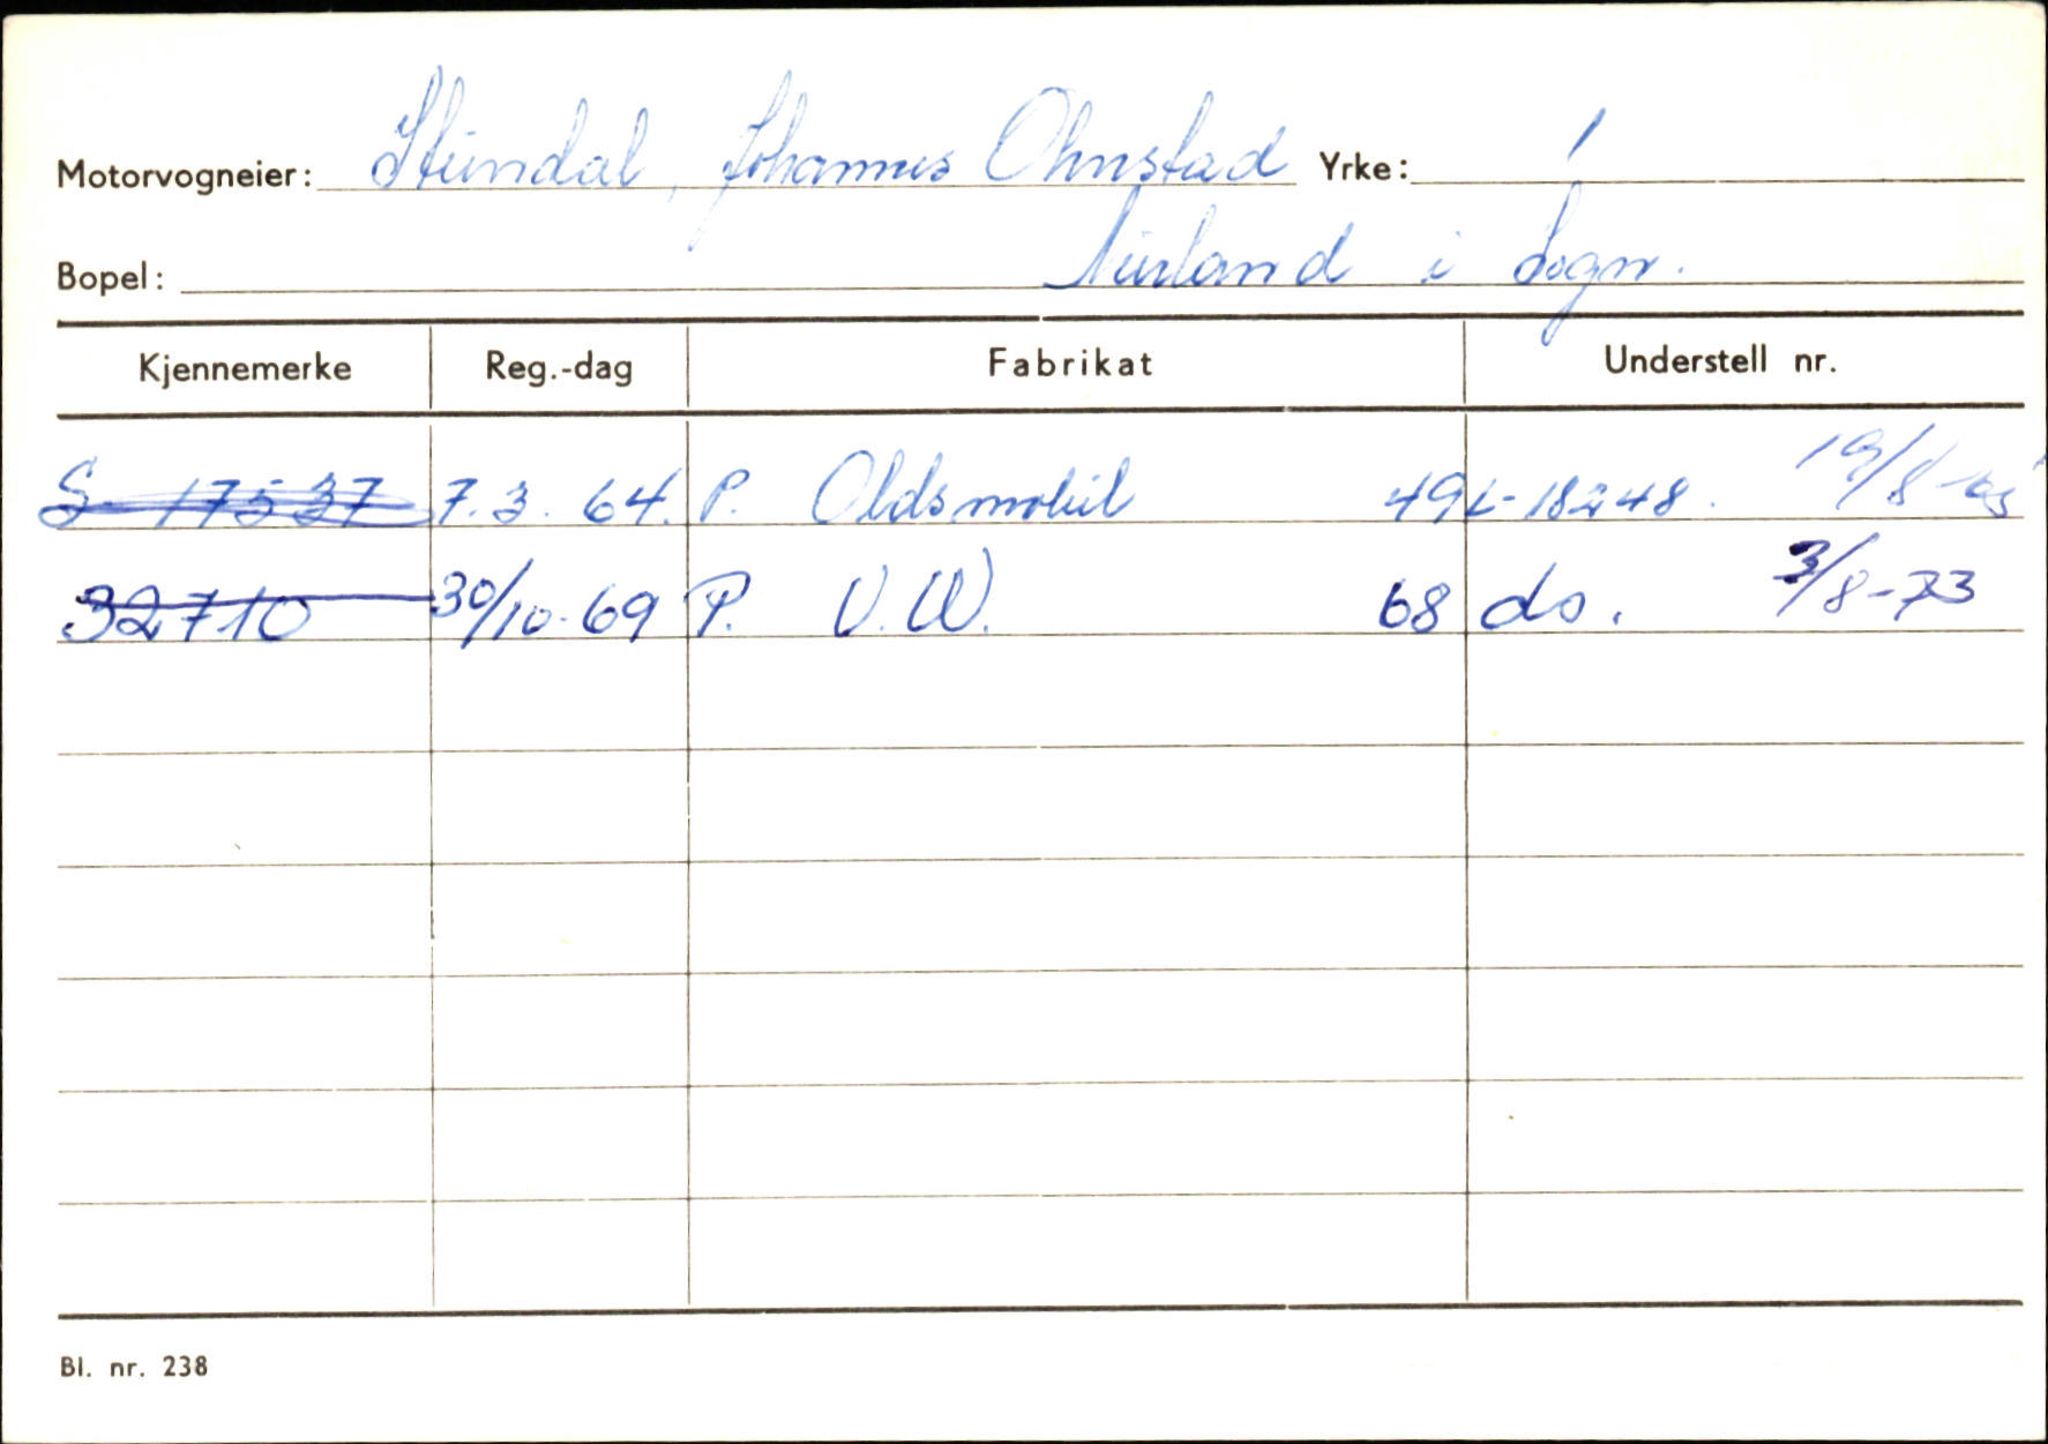 Motorvogneier: Steindal, Johannes Ohnstad Yrke: /
Bopel: Aurland i Sogn.
Kjennemerke Reg.-dag Fabrikat Understell nr.
S 17537 7.3. 64. P. Oldsmobil 49L-18248. 19/8-65
32710 30/10-69 P. V.W. 68 do. 3/8-73
Bl. nr. 238